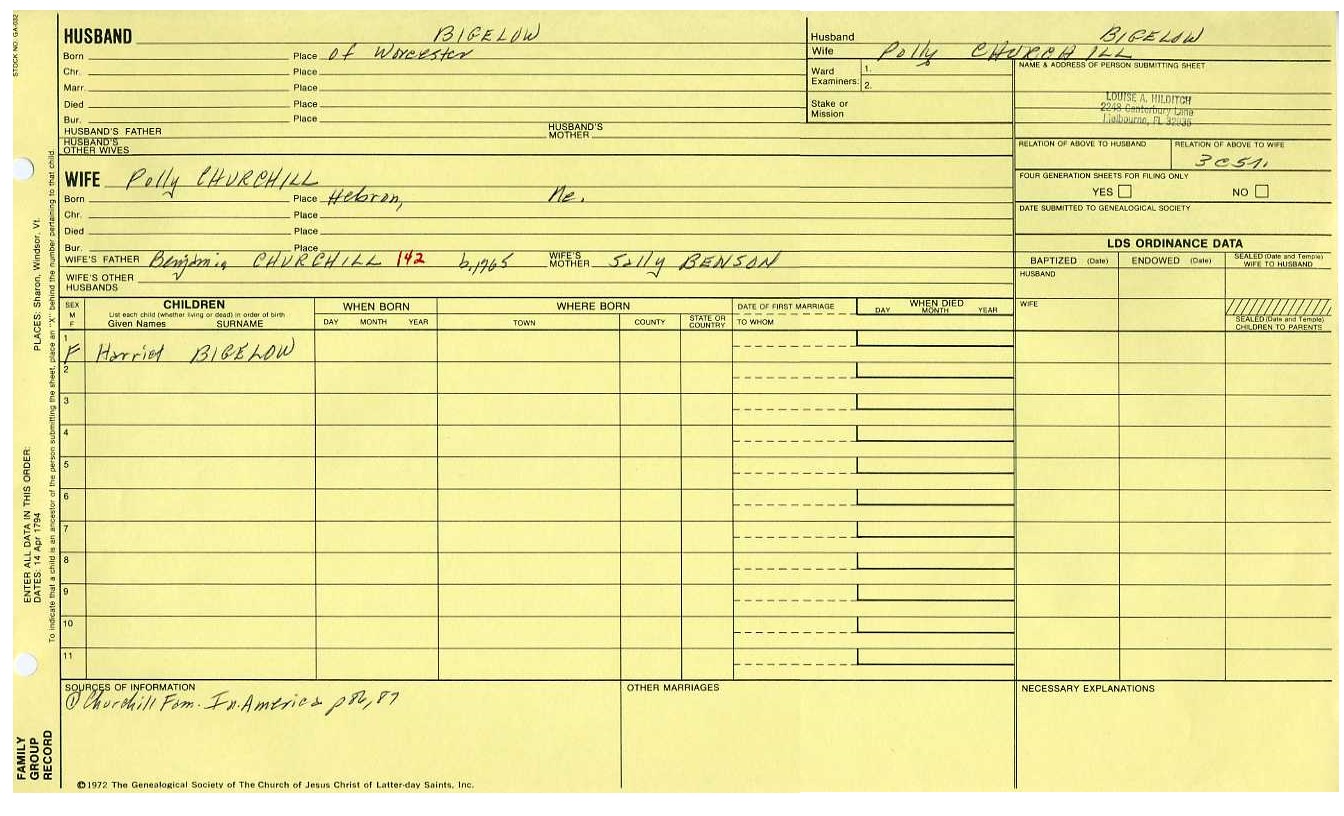 STOCK NO. GA-032
HUSBAND BIGELOW
Born Place of Worcester
Chr. Place
Marr. Place
Died Place
Bur. Place
HUSBAND'S FATHER HUSBAND'S MOTHER
HUSBAND'S OTHER WIVES
WIFE Polly CHURCHILL
Born Place Hebron, Me.
Chr. Place
Died Place
Bur. Place
WIFE'S FATHER Benjamin CHURCHILL 142 b.1965 WIFE'S MOTHER Sally BENSON
WIFE'S OTHER HUSBANDS
Husband BIGELOW
Wife Polly CHURCHILL
Ward Examiners: 1.
2.
Stake or Mission
NAME & ADDRESS OF PERSON SUBMITTING SHEET
LOUISE A. HILDITCH
2248 Canterbury Lane
Melbourne, FL 32935
RELATION OF ABOVE TO HUSBAND RELATION OF ABOVE TO WIFE
3C5r.
FOUR GENERATION SHEETS FOR FILING ONLY
YES NO
DATE SUBMITTED TO GENEALOGICAL SOCIETY
LDS ORDINANCE DATA
BAPTIZED (Date) ENDOWED (Date) SEALED (Date and Temple) WIFE TO HUSBAND
HUSBAND
WIFE
SEALED (Date and Temple) CHILDREN TO PARENTS
SEX M F
CHILDREN
List each child (whether living or dead) in order of birth
Given Names SURNAME
WHEN BORN
DAY MONTH YEAR
WHERE BORN
TOWN COUNTY STATE OR COUNTRY
DATE OF FIRST MARRIAGE
TO WHOM
WHEN DIED
DAY MONTH YEAR
1 F Harriet BIGELOW
2
3
4
5
6
7
8
9
10
11
SOURCES OF INFORMATION
① Churchill Fam. In America p86,87
OTHER MARRIAGES
NECESSARY EXPLANATIONS
©1972 The Genealogical Society of The Church of Jesus Christ of Latter-day Saints, Inc.
FAMILY GROUP RECORD
ENTER ALL DATA IN THIS ORDER:
DATES: 14 Apr 1794 PLACES: Sharon, Windsor, Vt.
To indicate that a child is an ancestor of the person submitting the sheet, place an "X" behind the number pertaining to that child.